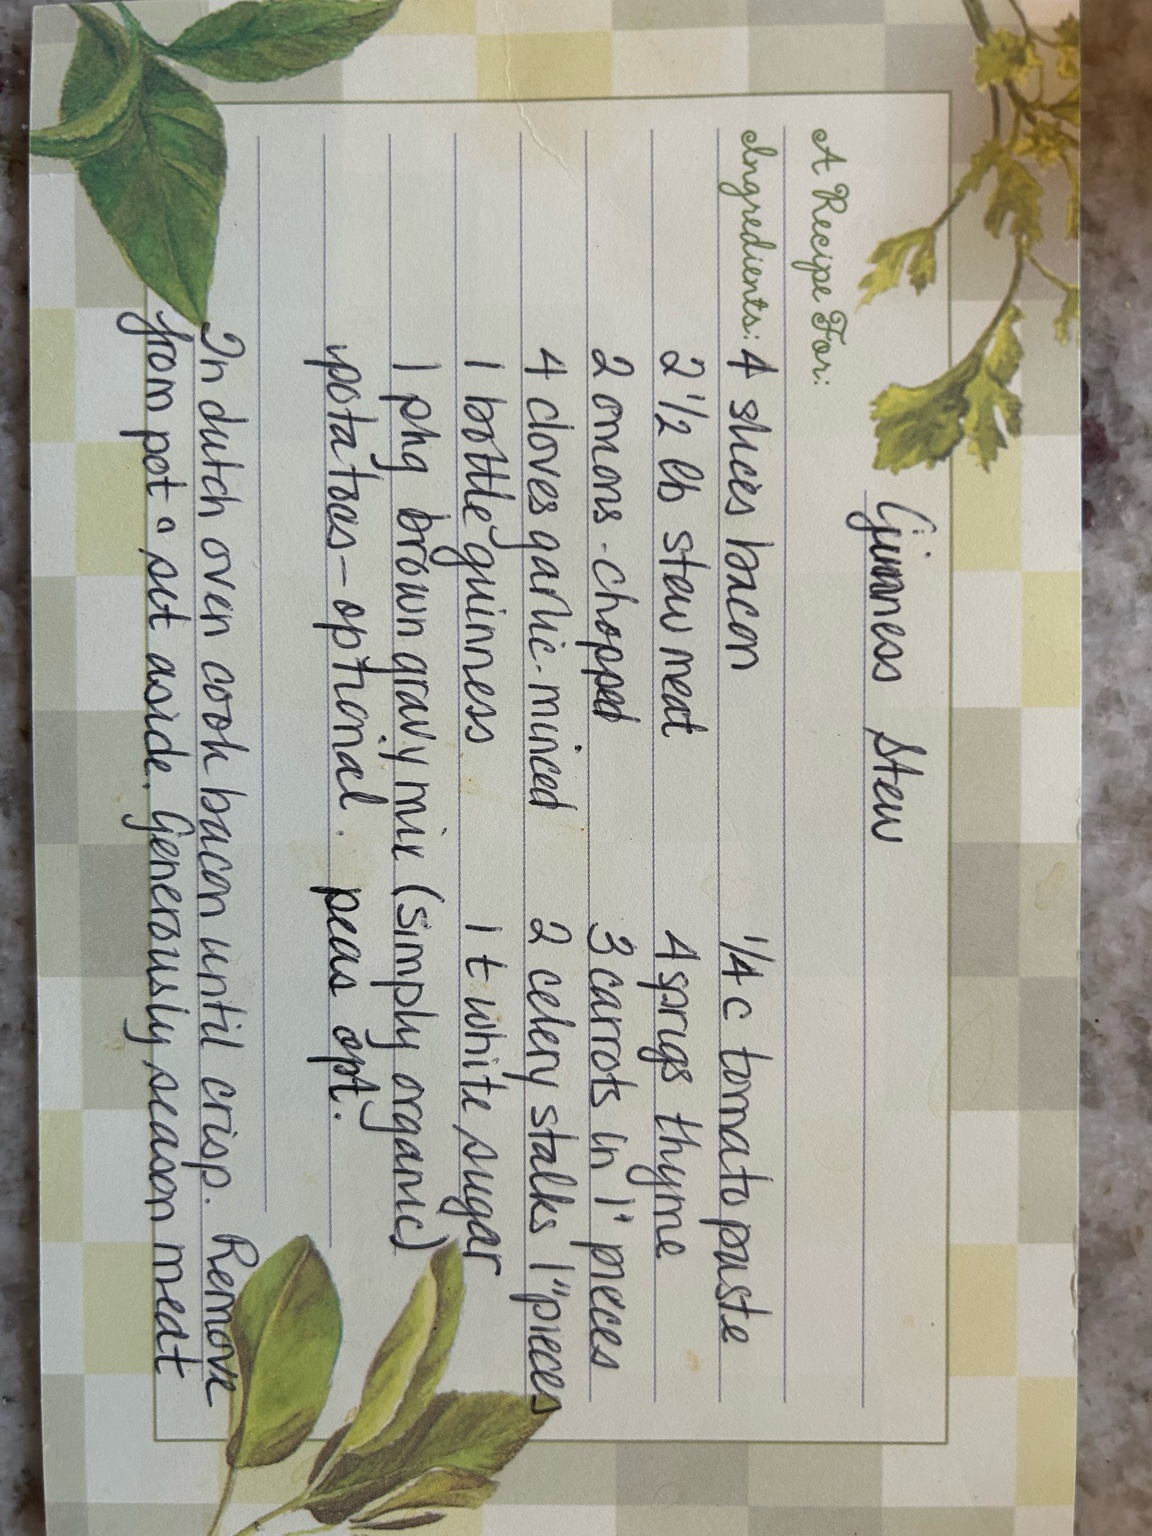 A Recipe For: Guinness Stew
Ingredients: 4 slices bacon 1/4 c tomato paste
2 1/2 lb stew meat 4 sprigs thyme
2 onions - chopped 3 carrots in 1" pieces
4 cloves garlic - minced 2 celery stalks 1" pieces
1 bottle guinness 1 t white sugar
1 pkg brown gravy mix (simply organic)
potatoes - optional. peas opt.
In dutch oven cook bacon until crisp. Remove
from pot & set aside. Generously season meat